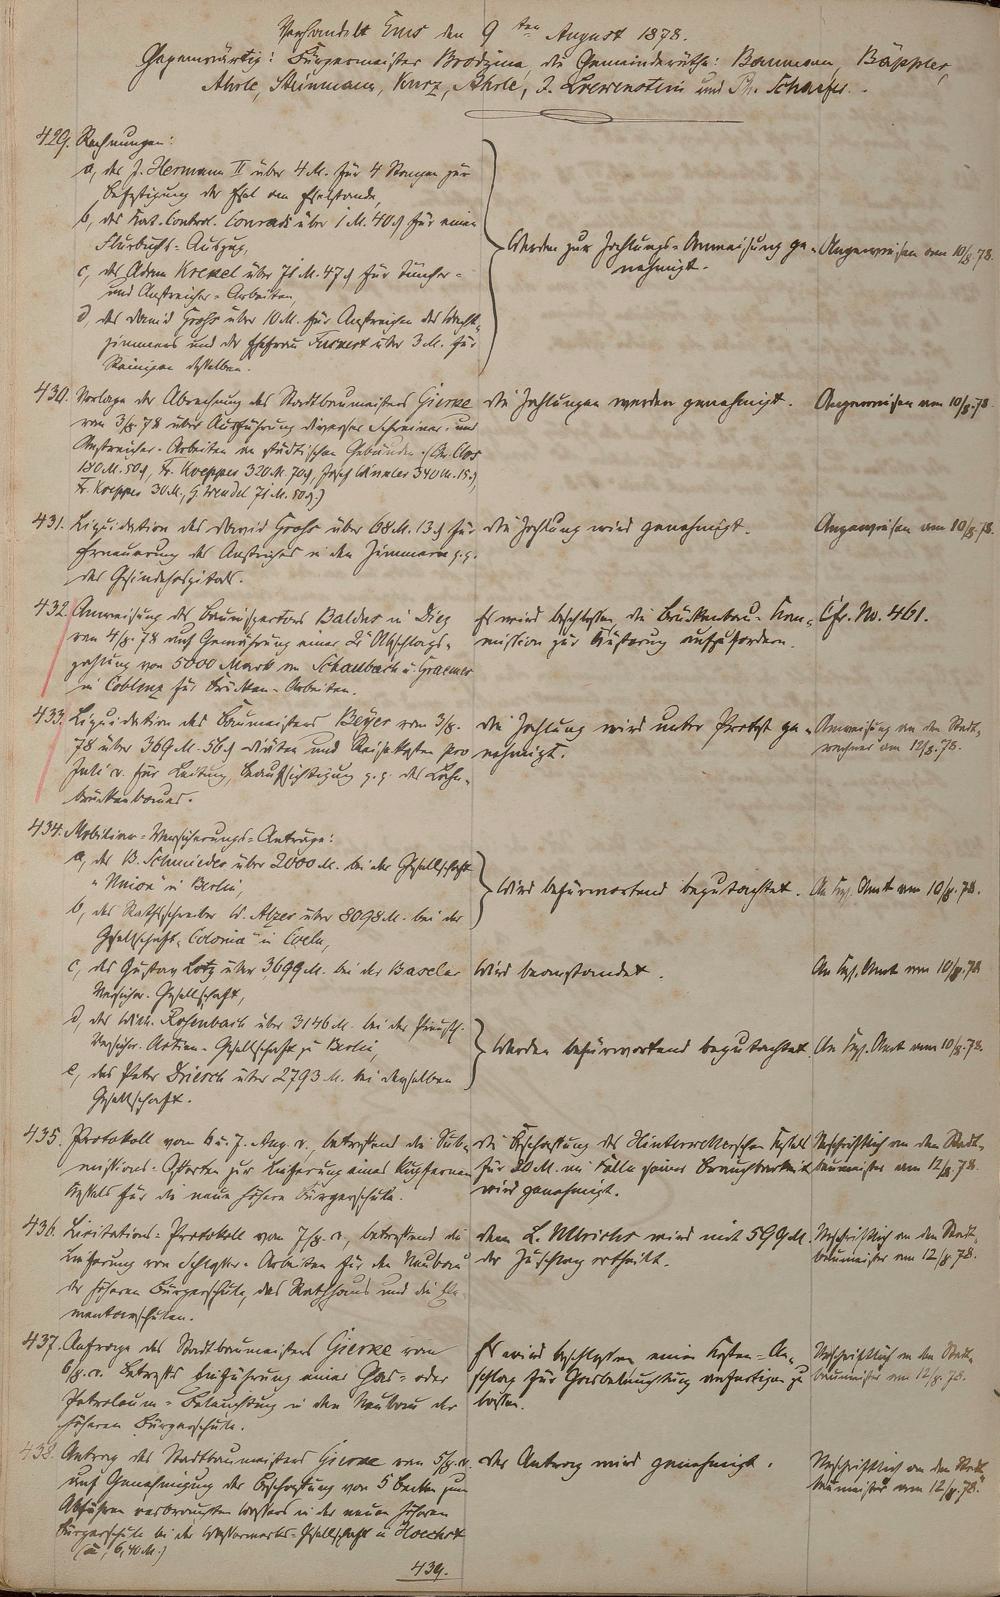 Verhandelt Ems den 9ten August 1878.
Gegenwärtig: Bürgermeister Brodzina, die Gemeinderäthe: Baumann, Bäppler,
Ahrle, Steinmann, Kurz, Ahrle, J. Loewenstein und Ph. Schaefer.
429. Rechnungen:
a, des J. Hermann II über 4 M. für 4 Stangen zur
Befestigung der Esel am Eselstande,
b, des Kat. Control. Conradi über 1 M. 40 für einen
Flurbuchs-Auszug,
c, des Adam Krekel über 71 M. 47 für Tüncher-
und Anstreicher-Arbeiten,
d, des David Grohs über 10 M. für Anstreichen des Wacht-
zimmers und der Ehefrau über 3 M. für
Reinigen desselben.
Werden zur Zahlungs-Anweisung ge-
nehmigt.
Angewiesen am 10/8.78.
430. Vorlage der Abrechnung des Stadtbaumeisters Gierke
vom 3/8.78 über Ausführung diverser Schreiner- und
Anstreicher-Arbeiten in städtischen Gebäuden
180 M. 50, Fr. Koepper 320 M. 70, Josef 340 M. 15,
Fr. Koepper 30 M., G. Wendel 71 M. 80)
Die Zahlungen werden genehmigt.
Angewiesen am 10/8.78.
431. Liquidation des David Grohs über 68 M. 13 für
Erneuerung des Anstriches in den Zimmern p.p.
des Gesindehospitals.
Die Zahlung wird genehmigt.
Angewiesen am 10/8.78.
432. Anweisung des Bauinspectors Baldus in Diez
vom 4/8.78 auf Gewährung einer 2ten Abschlags-
zahlung von 5000 Mark an Schaubach u. Graemer
in Coblenz für Brücken-Arbeiten.
Es wird beschlossen die Brückenbau-Kom-
mission zur Äußerung aufzufordern.
Cfr. No. 461.
433. Liquidation des Baumeisters Beyer vom 3/8.
78 über 369 M. 56 Diäten und Reisekosten pro
Juli c. für Leitung, Beaufsichtigung p.p. des Lahn-
brückenbaues.
Die Zahlung wird unter Protest ge-
nehmigt.
Anweisung an den Stadt-
rechner am 12/8.78.
434. Mobiliar-Versicherungs-Anträge:
a, des B. Schmieder über 2000 M. bei der Gesellschaft
"Union" in Berlin,
b, des Rathsschreiber W. Alzer über 8098 M. bei der
Gesellschaft "Colonia" in Coeln,
Wird befürwortend begutachtet.
An Kgl. Amt am 10/8.78.
c, des Gustav Lotz über 3699 M. bei der Baseler
Versicher. Gesellschaft,
Wird beanstandet.
An Kgl. Amt am 10/8.78
d, des Wilh. Rosenbach über 3146 M. bei der Preuß.
Versicher. Actien-Gesellschaft zu Berlin,
e, des Peter Driesch über 2793 M. bei derselben
Gesellschaft.
Werden befürwortend begutachtet.
An Kgl. Amt am 10/8.78.
435. Protokoll vom 6 u. 7. Aug. c., betreffend die Sub-
missions-Offerten zur Lieferung eines kupfernen
Kessels für die neue höhere Bürgerschule.
Die Beschaffung des Kessels
für 20 M. im Falle seiner Brauchbarkeit
wird genehmigt.
Urschriftlich an den Stadt-
baumeister am 12/8.78.
436. Licitations-Protokoll vom 7/8. c., betreffend die
Lieferung von Schlosser-Arbeiten für den Neubau
der höheren Bürgerschule, das Rathhaus und die Ele-
mentarschulen.
Dem L. Ulrichs wird mit 599 M.
der Zuschlag ertheilt.
Urschriftlich an den Stadt-
baumeister am 12/8.78.
437. Anfrage des Stadtbaumeisters Gierke vom
6/8. c. betreffs Einführung einer Gas- oder
Petroleum-Beleuchtung in den Neubau der
höheren Bürgerschule.
Es wird beschlossen einen Kosten-An-
schlag für Gasbeleuchtung anfertigen zu
lassen.
Urschriftlich an den Stadt-
baumeister am 12/8.78.
438. Antrag des Stadtbaumeisters Gierke vom 5/8. c.
auf Genehmigung der Beschaffung von 5 Becken zum
Abführen verbrauchten Wassers in der neuen höheren
Bürgerschule bei der Gesellschaft in Hoechst
(à 6,40 M.)
Der Antrag wird genehmigt.
Urschriftlich an den Stadt-
baumeister am 12/8.78.
439.